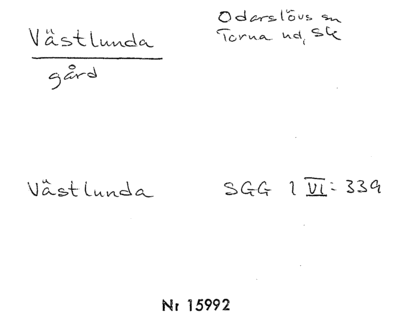 Västlunda
gård
Oderslövs sn
Torna hd, Sk
Västlunda SGG 1 VI: 339
Nr 15992